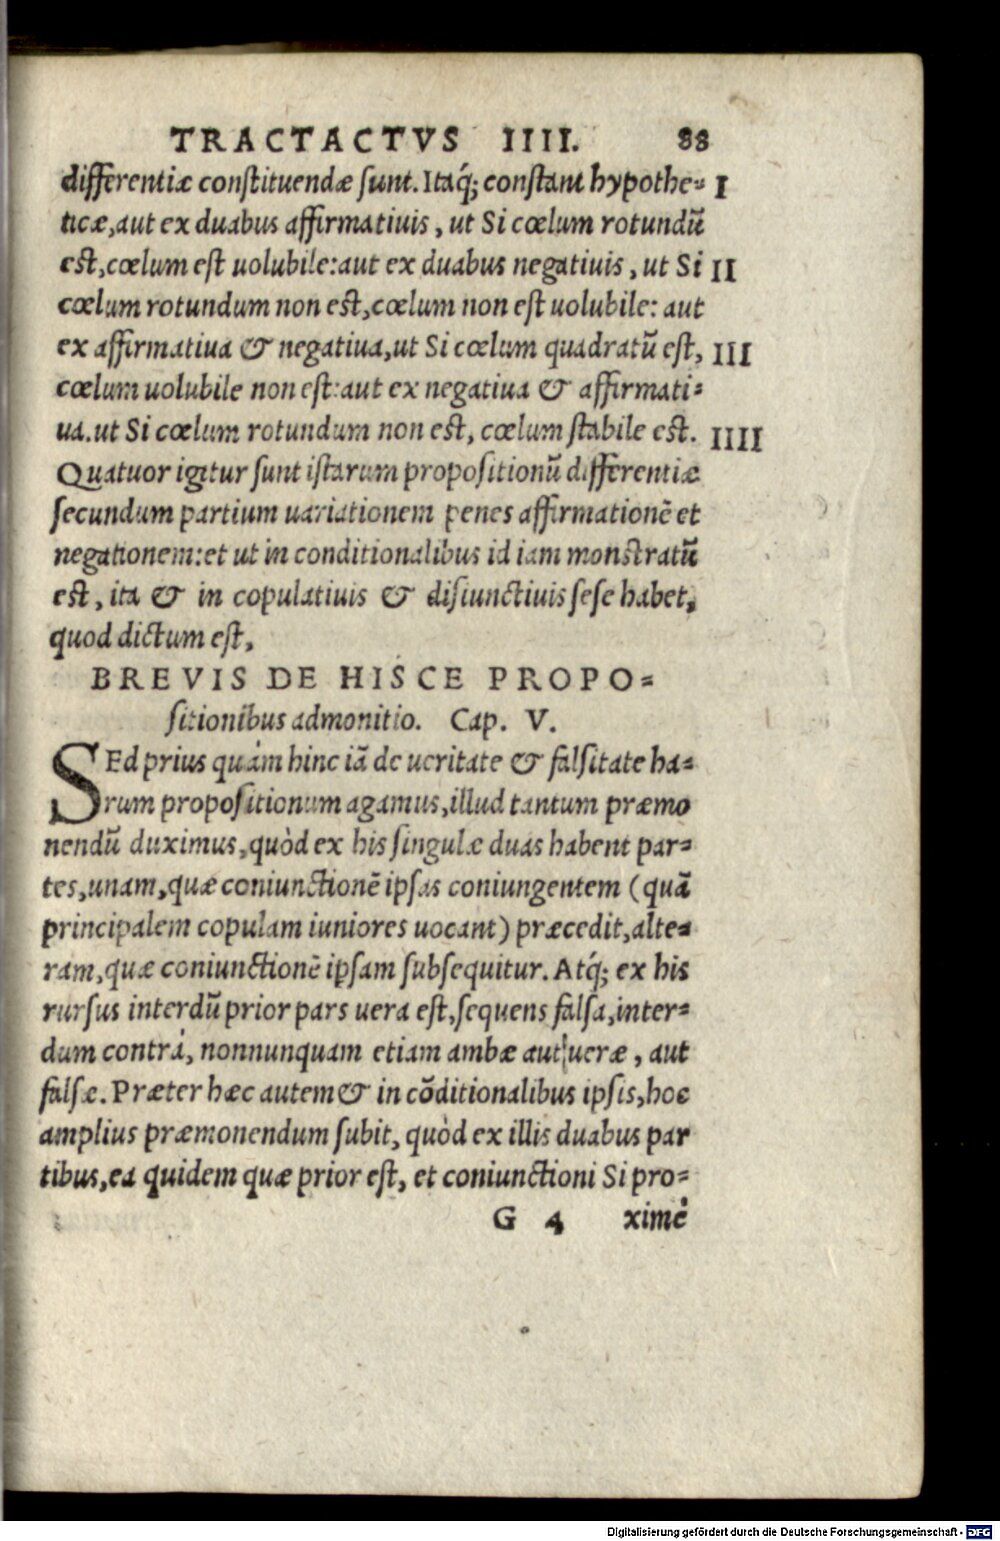 TRACTACTVS IIII. 88
differentiæ constituendæ sunt. Itaq́; constant hypothe- I
ticæ, aut ex duabus affirmatiuis, ut Si cœlum rotundũ
est, cœlum est uolubile: aut ex duabus negatiuis, ut Si II
cœlum rotundum non est, cœlum non est uolubile: aut
ex affirmatiua & negatiua, ut Si cœlum quadratũ est, III
cœlum uolubile non est: aut ex negatiua & affirmati-
ua. ut Si cœlum rotundum non est, cœlum stabile est. IIII
Quatuor igitur sunt istarum propositionũ differentiæ
secundum partium uariationem penes affirmationẽ et
negationem: et ut in conditionalibus id iam monstratũ
est, ita & in copulatiuis & disiunctiuis sese habet,
quod dictum est,
BREVIS DE HISCE PROPO-
sitionibus admonitio. Cap. V.
SEd prius quàm hinc iã de ueritate & falsitate ha-
rum propositionum agamus, illud tantum præmo
nendũ duximus, quòd ex his singulæ duas habent par-
tes, unam, quæ coniunctionẽ ipsas coniungentem (quã
principalem copulam iuniores uocant) præcedit, alte-
ram, quæ coniunctionẽ ipsam subsequitur. Atq́; ex his
rursus interdũ prior pars uera est, sequens falsa, inter-
dum contrà, nonnunquam etiam ambæ aut ueræ, aut
falsæ. Præter hæc autem & in cõditionalibus ipsis, hoc
amplius præmonendum subit, quòd ex illis duabus par
tibus, ea quidem quæ prior est, et coniunctioni Si pro-
G 4 ximè
Digitalisierung gefördert durch die Deutsche Forschungsgemeinschaft - DFG